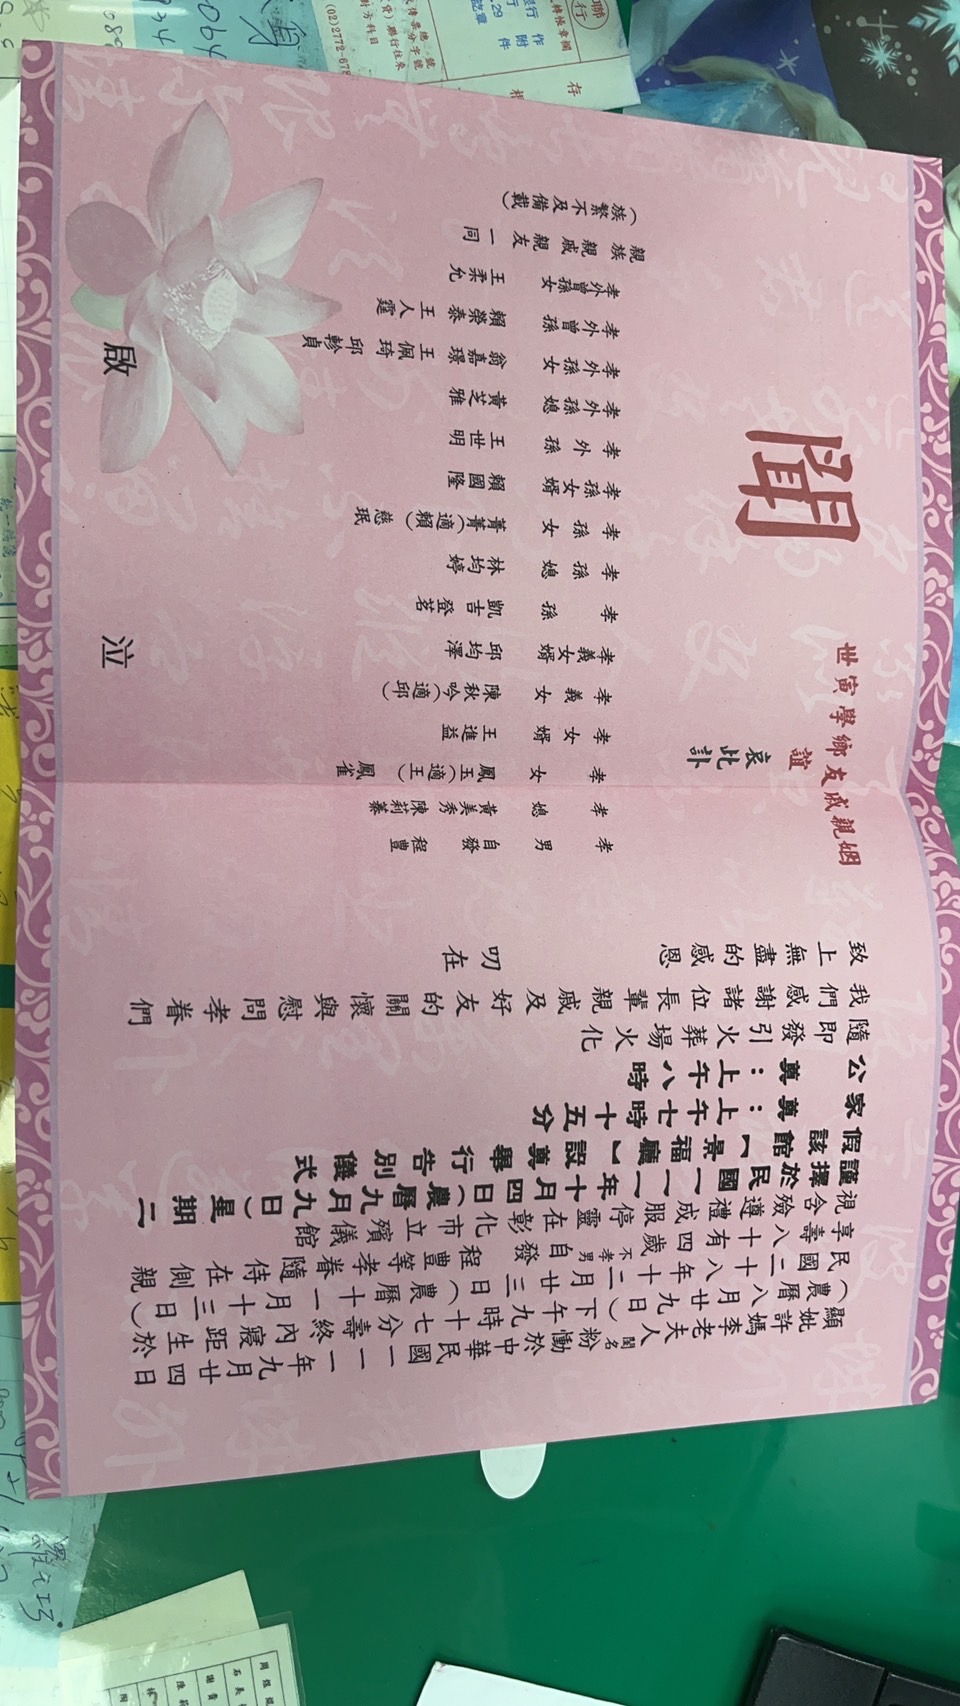 顯妣許媽李老夫人閨名粉慟於中華民國一一一年九月廿四日
(農曆八月廿九日)下午九時十七分壽終內寢距生於
民國二十八年十二月廿三日(農曆十一月十三日)
享壽八十有四歲不孝男自發程豐等孝眷隨侍在側親
視含殮遵禮成服停靈在彰化市立殯儀館
謹擇於民國一一一年十月四日(農曆九月九日)星期二
假該館【景福廳】設奠舉行告別儀式
家奠:上午七時十五分
公奠:上午八時
隨即發引火葬場火化
我們感謝諸位長輩親戚及好友的關懷與慰問孝眷們
致上無盡的感恩 叨在
姻親戚友鄉學寅世誼
哀此訃
聞
孝男 自發 程豐
孝媳 黃美秀 陳莉蓁
孝女 鳳玉(適王) 鳳雀
孝女婿 王進益
孝義女 陳秋吟(適邱)
孝義女婿 邱均澤
孝孫 凱吉 登茗
孝孫媳 林均婷
孝孫女 菁菁(適賴) 慈珉
孝孫女婿 賴國隆
孝外孫 王世明
孝外孫媳 黃芝雅
孝外孫女 翁嘉璟 王佩琦 邱軫貞
孝外曾孫 賴榮泰 王人霆
孝外曾孫女 王柔允
親族親戚親友一同
(族繁不及備載)
泣啟